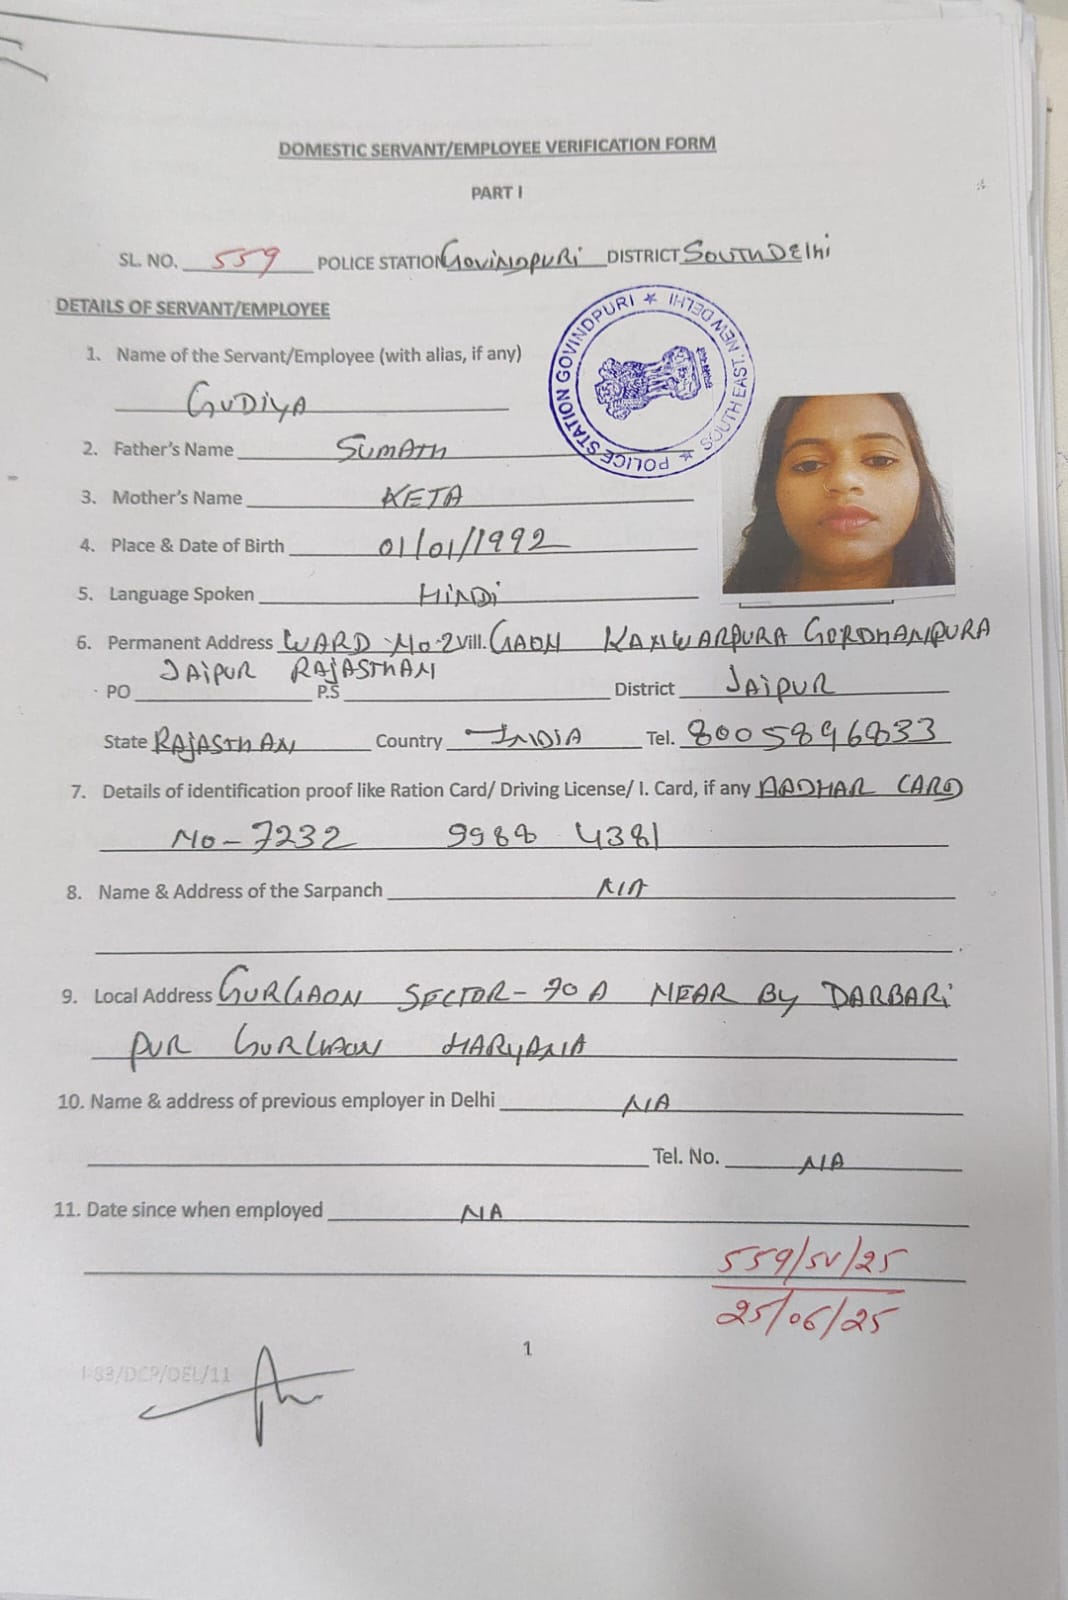 DOMESTIC SERVANT/EMPLOYEE VERIFICATION FORM
PART I
SL. NO. 559 POLICE STATION GOVINDPURI DISTRICT SOUTH DElhi
DETAILS OF SERVANT/EMPLOYEE
POLICE STATION GOVINDPURI ★ SOUTH EAST. NEW DELHI ★
1. Name of the Servant/Employee (with alias, if any)
GUDIYA
2. Father's Name SUMATH
3. Mother's Name KETA
4. Place & Date of Birth 01/01/1992
5. Language Spoken HINDI
6. Permanent Address WARD NO-2 Vill. GAON KANWARPURA GORDHANPURA
JAIPUR RAJASTHAN
PO P.S District JAIPUR
State RAJASTHAN Country INDIA Tel. 8005896833
7. Details of identification proof like Ration Card/ Driving License/ I. Card, if any AADHAR CARD
NO-7232 9988 4381
8. Name & Address of the Sarpanch N/A
9. Local Address GURGAON SECTOR-70A NEAR BY DARBARI
PUR GURGAON HARYANA
10. Name & address of previous employer in Delhi N/A
Tel. No. N/A
11. Date since when employed NA
559/SV/25
25/06/25
1
I-83/DCP/DEL/11